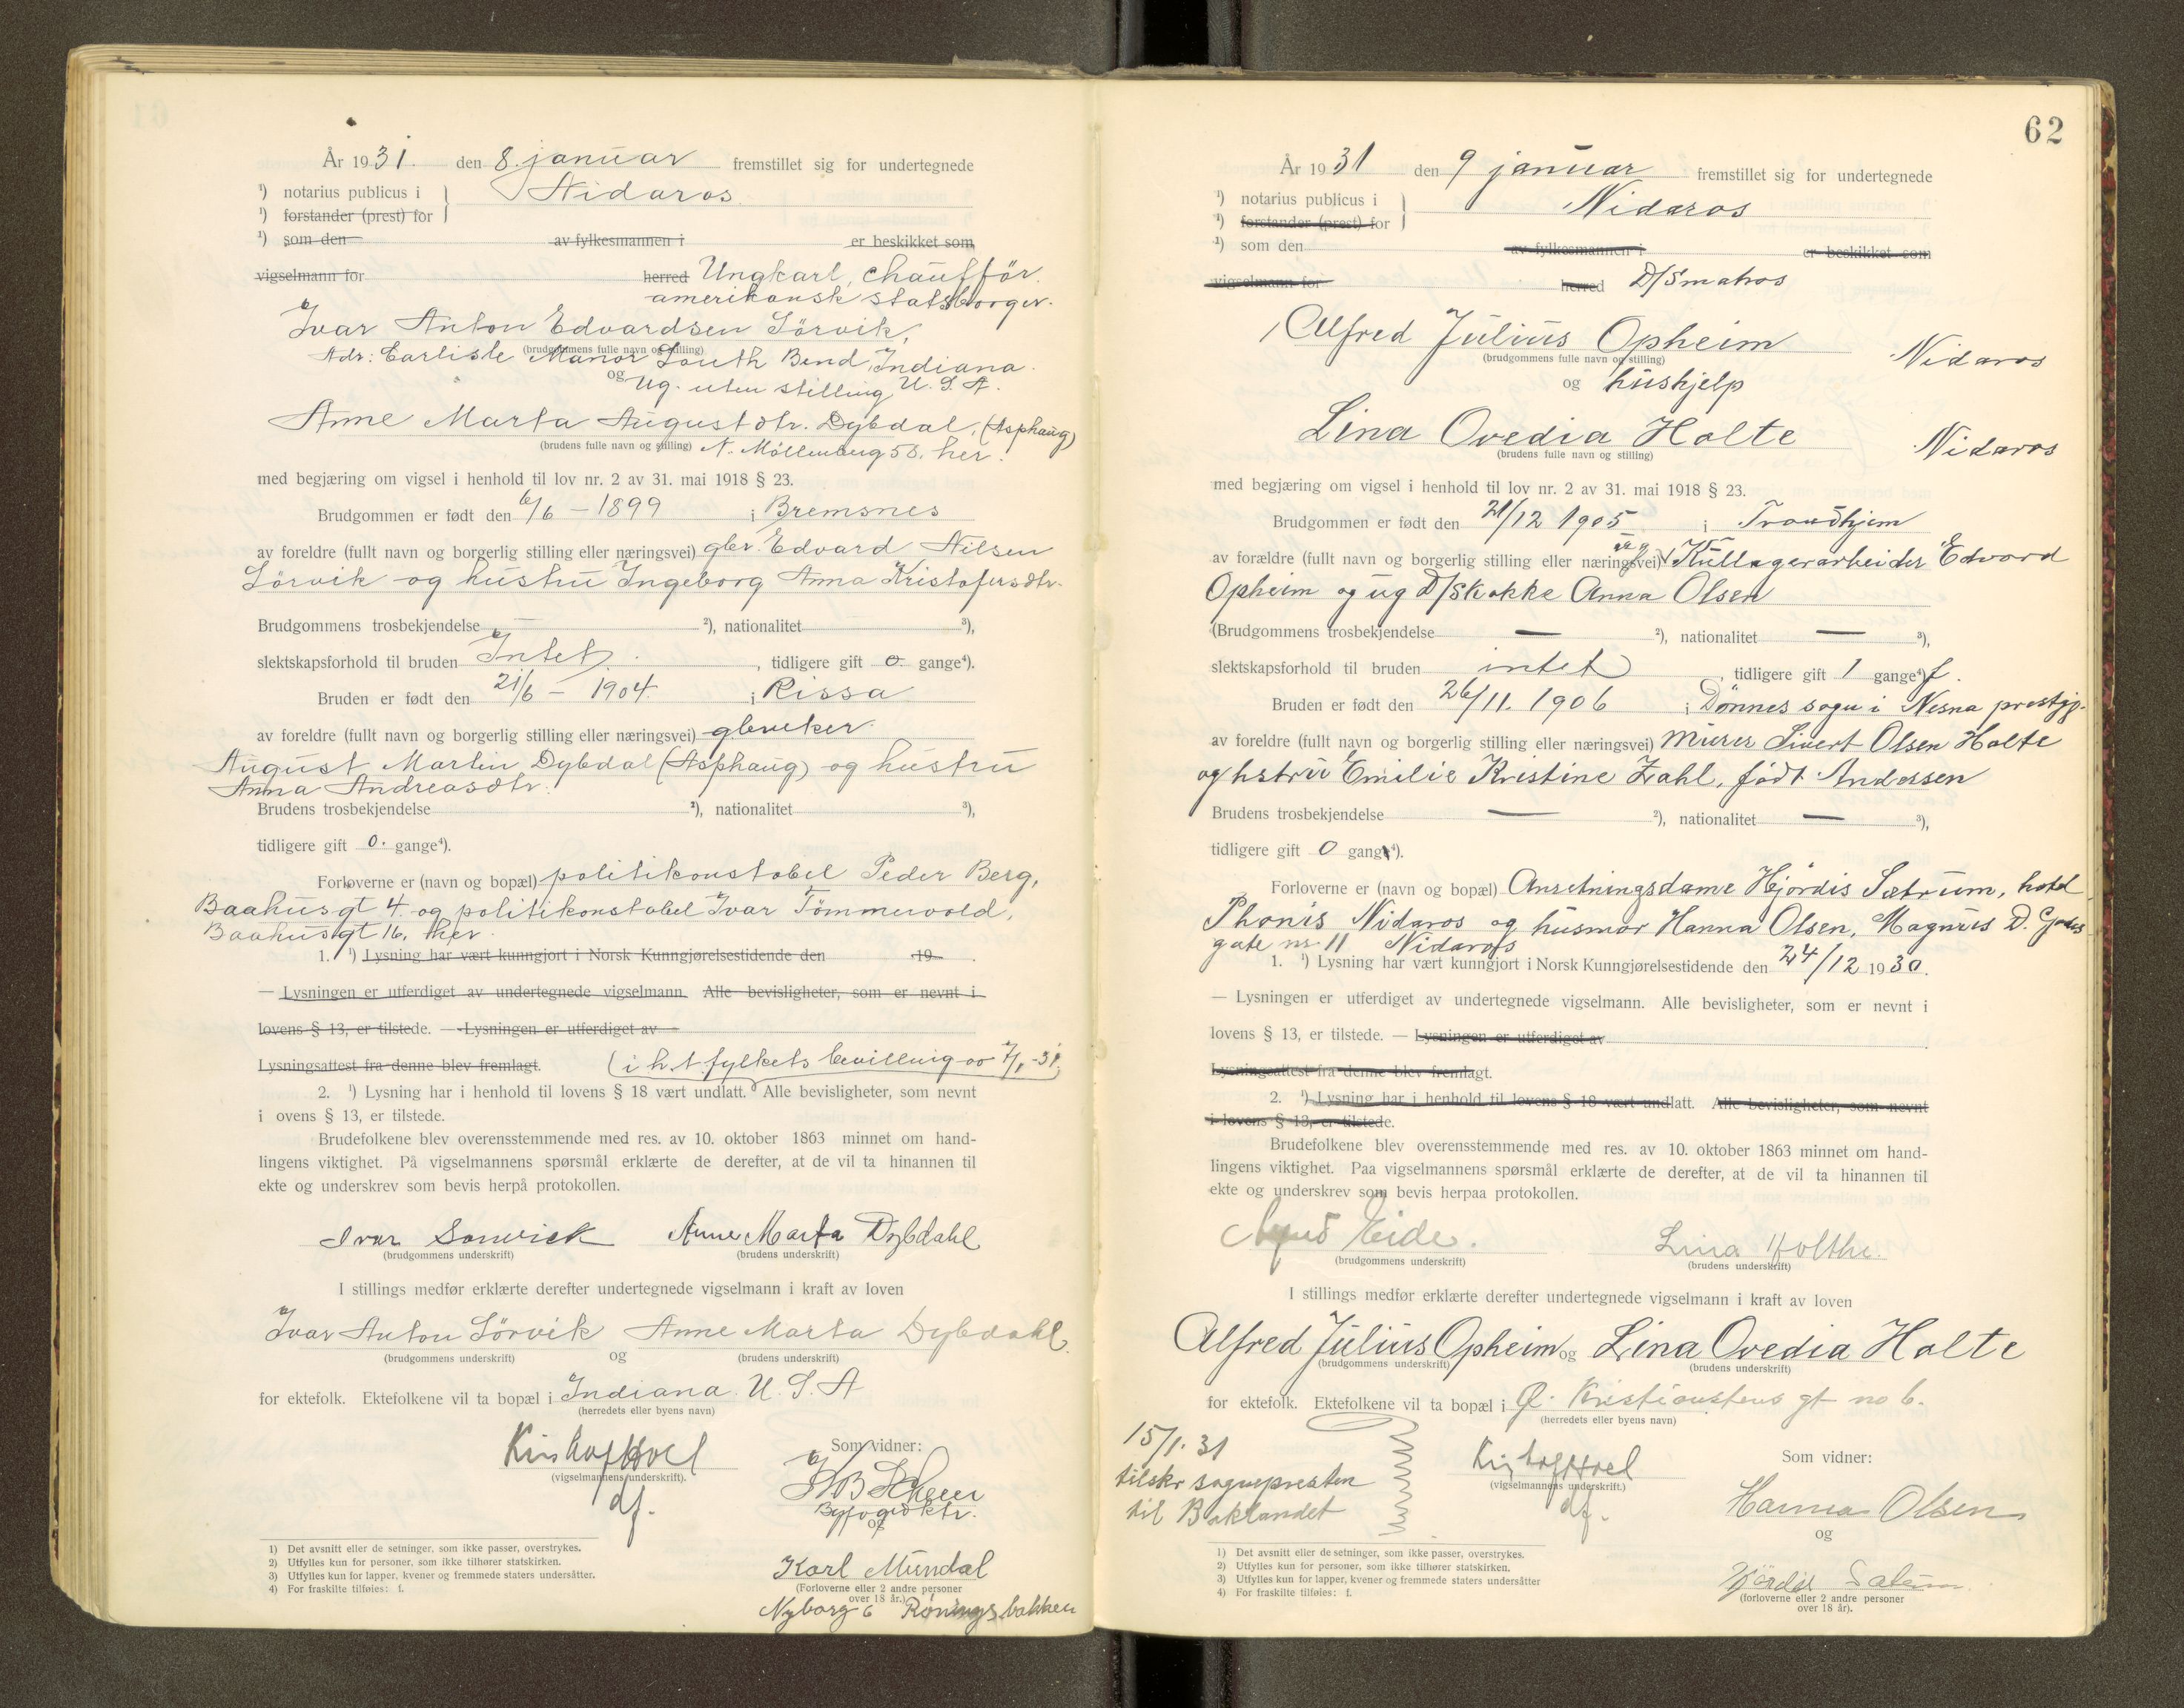 År 1931. den 8. januar fremstillet sig for undertegnede
¹) notarius publicus i Nidaros
¹) forstander (prest) for
¹) som den av fylkesmannen i er beskikket som
vigselmann for herred Ungkarl, chaufför.
amerikansk statsborger.
Ivar Anton Edvardsen Sörvik,
(brudgommens fulle navn og stilling)
Adr: Earlisle Manor South Bend, Indiana
og Ug. uten stilling U. S. A.
Anne Marta Augustdtr. Dybdal, (Asphaug)
(brudens fulle navn og stilling) N. Möllenberg 58, her.
med begjæring om vigsel i henhold til lov nr. 2 av 31. mai 1918 § 23.
Brudgommen er født den 6/6 - 1899 i Bremsnes
av foreldre (fullt navn og borgerlig stilling eller næringsvei) gbr. Edvard Nilsen
Sörvik og hustru Ingeborg Anna Kristofersdtr.
Brudgommens trosbekjendelse ²), nationalitet ³),
slektskapsforhold til bruden Intet, tidligere gift 0. gange⁴).
Bruden er født den 21/6 - 1904. i Rissa
av foreldre (fullt navn og borgerlig stilling eller næringsvei) gbruker
August Martin Dybdal (Asphaug) og hustru
Anna Andreasdtr.
Brudens trosbekjendelse ²), nationalitet ³),
tidligere gift 0. gange⁴).
Forloverne er (navn og bopæl) politikonstabel Peder Berg,
Baahusgt 4. og politikonstabel Ivar Tömmervold,
Baahusgt 16, her.
1. ¹) Lysning har vært kunngjort i Norsk Kunngjørelsestidende den 19 .
— Lysningen er utferdiget av undertegnede vigselmann Alle bevisligheter, som er nevnt i
lovens § 13, er tilstede. — Lysningen er utferdiget av
Lysningsattest fra denne blev fremlagt. (i h. t. fylkets bevilling av 7/1 -31.
2. ¹) Lysning har i henhold til lovens § 18 vært undlatt. Alle bevisligheter, som nevnt
i ovens § 13, er tilstede.
Brudefolkene blev overensstemmende med res. av 10. oktober 1863 minnet om hand-
lingens viktighet. På vigselmannens spørsmål erklærte de derefter, at de vil ta hinannen til
ekte og underskrev som bevis herpå protokollen.
Ivar Sorwick Anne Marta Dybdahl
(brudgommens underskrift) (brudens underskrift)
I stillings medfør erklærte derefter undertegnede vigselmann i kraft av loven
Ivar Anton Sörvik og Anne Marta Dybdahl
(brudgommens underskrift) (brudens underskrift)
for ektefolk. Ektefolkene vil ta bopæl i Indiana U. S. A
(herredets eller byens navn)
(vigselmannens underskrift).
df.
Som vidner:
og
Karl Mundal
(Forloverne eller 2 andre personer
over 18 år.)
Nyborg 6 Röningsbakken
1) Det avsnitt eller de setninger, som ikke passer, overstrykes.
2) Utfylles kun for personer, som ikke tilhører statskirken.
3) Utfylles kun for lapper, kvener og fremmede staters undersåtter.
4) For fraskilte tilføies: f.
62
År 1931 den 9 januar fremstillet sig for undertegnede
¹) notarius publicus i Nidaros
¹) forstander (prest) for
¹) som den av fylkesmannen i er beskikket som
vigselmann for herred D/Smatros
Alfred Julius Opheim Nidaros
(brudgommens fulle navn og stilling)
og hushjelp
Lina Ovedia Holte Nidaros
(brudens fulle navn og stilling)
med begjæring om vigsel i henhold til lov nr. 2 av 31. mai 1918 § 23.
Brudgommen er født den 21/12 1905 i Trondhjem
av forældre (fullt navn og borgerlig stilling eller næringsvei) Kullagerarbeider Edvard
Opheim og ug D/Skokke Anna Olsen
(Brudgommens trosbekjendelse — ²), nationalitet — ³),
slektskapsforhold til bruden intet, tidligere gift 1 gange⁴) f.
Bruden er født den 26/11. 1906 i Dønnes sogn i Nesna prestgj.
av foreldre (fullt navn og borgerlig stilling eller næringsvei) Murer Sivert Olsen Holte
og hstru Emilie Kristine Zahl, født Andersen
Brudens trosbekjendelse — ²), nationalitet — ³),
tidligere gift 0 gang⁴).
Forloverne er (navn og bopæl) Anretningsdame Hjördis Sætrum, hotel
Phønix Nidaros og husmor Hanna Olsen, Magnus D. Godes
gate nr. 11 Nidaros
1. ¹) Lysning har vært kunngjort i Norsk Kunngjørelsestidende den 24/12 1930.
— Lysningen er utferdiget av undertegnede vigselmann. Alle bevisligheter, som er nevnt i
lovens § 13, er tilstede. — Lysningen er utferdiget av
Lysningsattest fra denne blev fremlagt.
2. ¹) Lysning har i henhold til lovens § 18 vært undlatt. Alle bevisligheter, som nevnt
i lovens § 13, er tilstede.
Brudefolkene blev overensstemmende med res. av 10. oktober 1863 minnet om hand-
lingens viktighet. Paa vigselmannens spørsmål erklærte de derefter, at de vil ta hinannen til
ekte og underskrev som bevis herpaa protokollen.
Lina Holthe.
(brudgommens underskrift) (brudens underskrift)
I stillings medfør erklærte derefter undertegnede vigselmann i kraft av loven
Alfred Julius Opheim og Lina Ovedia Holte
(brudgommens underskrift) (brudens underskrift)
for ektefolk. Ektefolkene vil ta bopæl i Ø. Kristianstens gt no 6.
(herredets eller byens navn)
15/1. 31
tilskr sognepresten
til Baklandet
(vigselmannens underskrift.)
df.
Som vidner:
Hanna Olsen
og
Hjördis Sætrum
(forloverne eller 2 andre personer
over 18 år).
1) Det avsnitt eller de setninger, som ikke passer, overstrykes.
2) Utfylles kun for personer, som ikke tilhører statskirken.
3) Utfylles kun for lapper, kvener og fremmede staters undersåtter
4) For fraskilte tilføies: f.